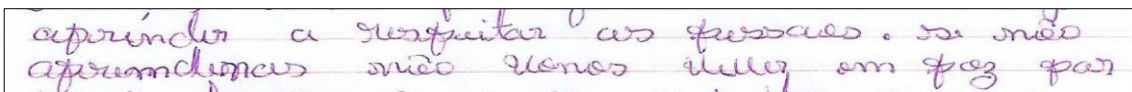 aprinder a respeitar as pessoas. se não
aprendemos não vamos viver em paz par